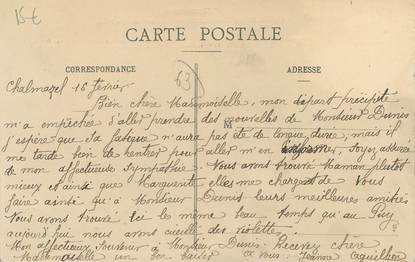 15€
CARTE POSTALE
CORRESPONDANCE
ADRESSE
63
M
Chalmazel 16 février
Bien chère Mademoiselle, mon départ précipité
m'a empêchée d'aller prendre des nouvelles de Monsieur Dunis
j'espère que sa fatigue n'aura pas été de longue durée; mais il
me tarde bien de rentrer pour aller m'en informer, soyez assurée
de mon affectueuse sympathie. Nous avons trouvé Maman plutôt
mieux et ainsi que Marguerite elles me chargent de vous
faire ainsi qu'à Monsieur Dunis leurs meilleures amitiés
Nous avons trouvé ici le même beau temps qu'au Puy
aujourd'hui nous avons cueilli des violettes.
Mon affectueux souvenir à Monsieur Dunis. Recevez chère
Mademoiselle un bon baiser à vous. Jeanne